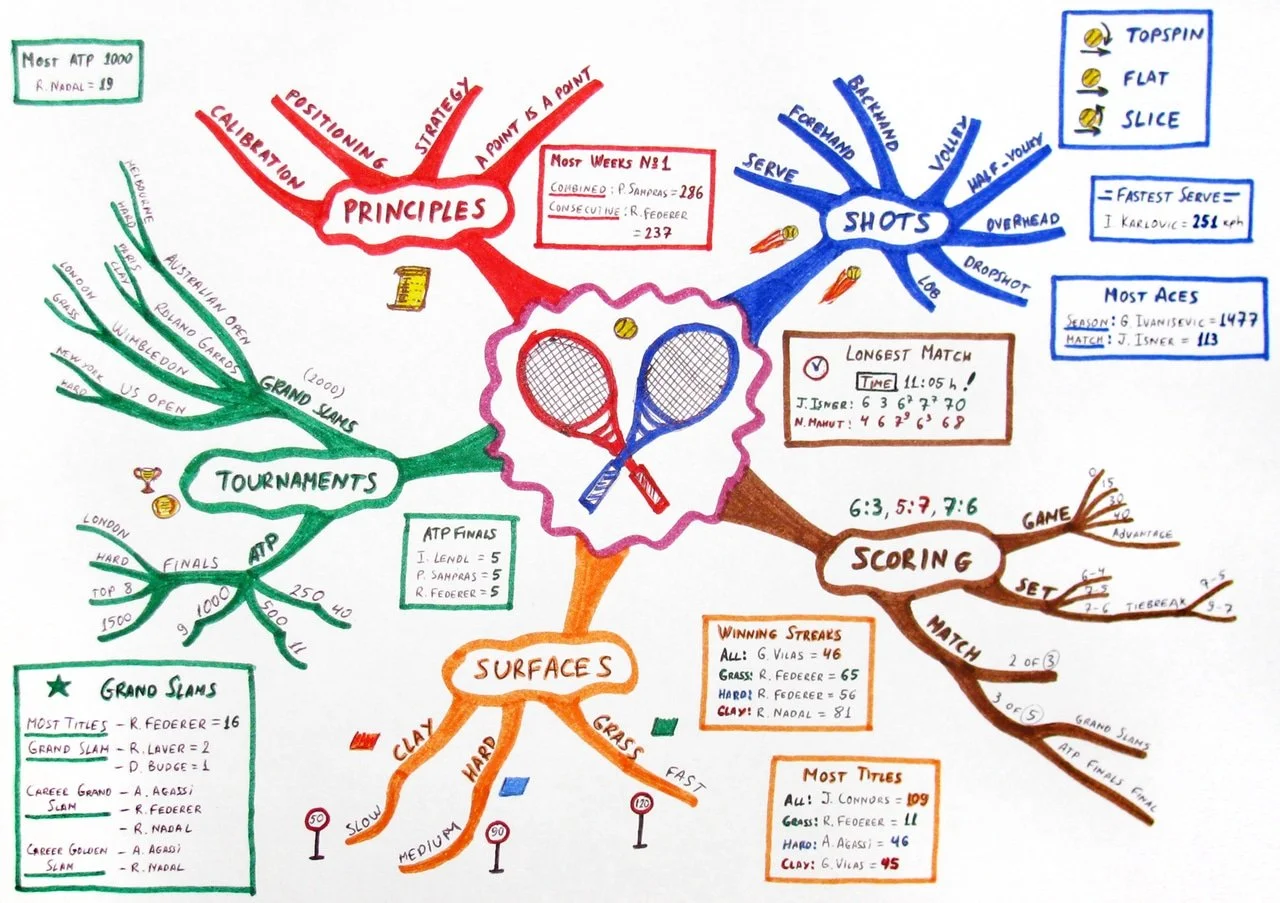 MOST ATP 1000
R. NADAL = 19
CALIBRATION
POSITIONING
STRATEGY
A POINT IS A POINT
PRINCIPLES
MOST WEEKS Nº1
COMBINED : P. SAMPRAS = 286
CONSECUTIVE : R. FEDERER
= 237
SERVE
FOREHAND
BACKHAND
VOLLEY
HALF-VOLLEY
OVERHEAD
DROPSHOT
LOB
SHOTS
TOPSPIN
FLAT
SLICE
= FASTEST SERVE =
I. KARLOVIC = 251 kph
MOST ACES
SEASON: G. IVANISEVIC = 1477
MATCH: J. ISNER = 113
LONGEST MATCH
TIME 11:05 h !
J. ISNER: 6 3 6⁷ 7⁷ 70
N. MAHUT: 4 6 7⁹ 6³ 68
MELBOURNE
HARD
AUSTRALIAN OPEN
PARIS
CLAY
ROLAND GARROS
LONDON
GRASS
WIMBLEDON
NEW YORK
HARD
US OPEN
(2000)
GRAND SLAMS
TOURNAMENTS
LONDON
HARD
TOP 8
1500
FINALS
ATP
9
1000
500
11
250
40
ATP FINALS
I. LENDL = 5
P. SAMPRAS = 5
R. FEDERER = 5
6:3, 5:7, 7:6
SCORING
GAME
0
15
30
40
ADVANTAGE
SET
6-4
7-5
7-6
TIEBREAK
7-5
9-7
MATCH
2 OF 3
3 OF 5
GRAND SLAMS
ATP FINALS FINAL
SURFACES
CLAY
SLOW
50
HARD
MEDIUM
90
GRASS
FAST
120
WINNING STREAKS
ALL: G. VILAS = 46
GRASS: R. FEDERER = 65
HARD: R. FEDERER = 56
CLAY: R. NADAL = 81
MOST TITLES
ALL: J. CONNORS = 109
GRASS: R. FEDERER = 11
HARD: A. AGASSI = 46
CLAY: G. VILAS = 45
GRAND SLAMS
MOST TITLES – R. FEDERER = 16
GRAND SLAM – R. LAVER = 2
– D. BUDGE = 1
CAREER GRAND – A. AGASSI
SLAM – R. FEDERER
– R. NADAL
CAREER GOLDEN – A. AGASSI
SLAM – R. NADAL